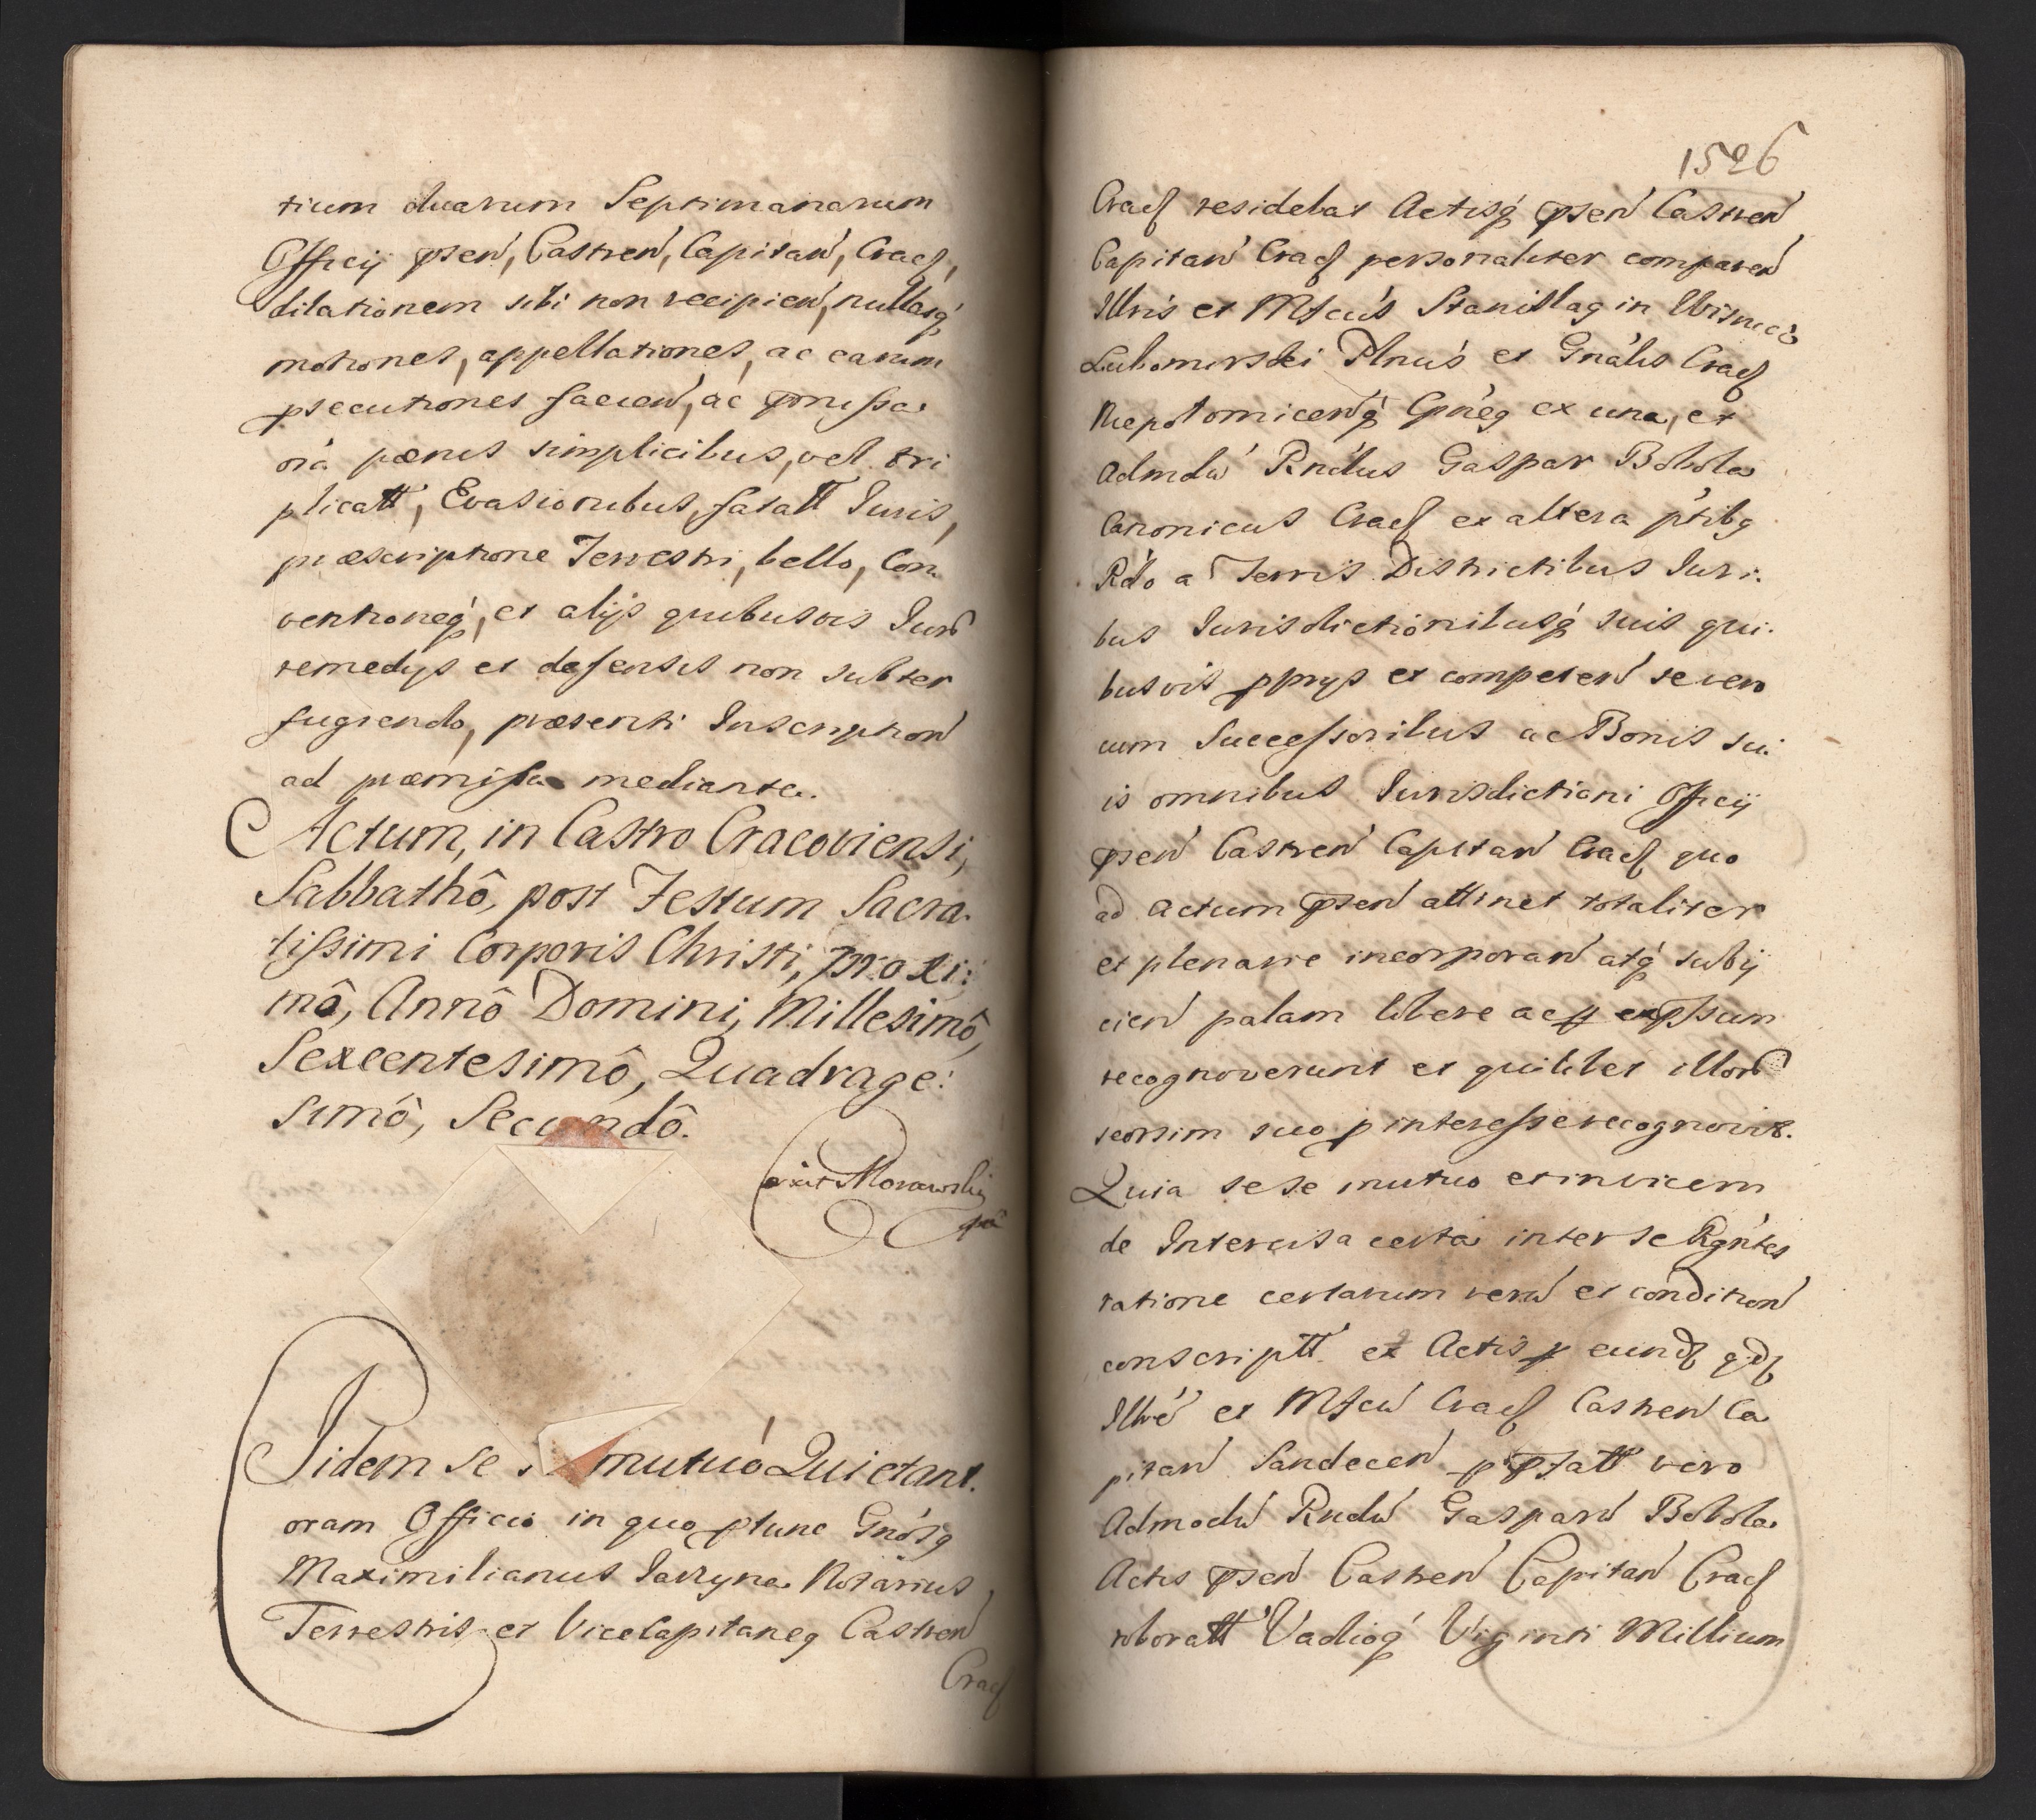 tium duarum Septimanarum
Officij psen, Castren, Capitan, Cracꝭ,
dilationem sibi non recipien, nullasq́
motiones, appellationes, ac earum
psecutiones facien, ac pmissa
oia pœnis simplicibus, vel tri
plicatt, Evasionibus, fatatt Iuris,
præscriptione Terrestri, bello, Con
ventioneq́, et alijs quibusvis Iuris
remedijs et defensis non subter
fugiendo, præsenti Inscription
ad præmissa mediante.
Actum, in Castro Cracoviensi,
Sabbathô, post Festum Sacra-
tissimi Corporis Christi, proxi:
mô, Annô Domini, Millesimô,
Sexcentesimô, Quadrage:
simô, Secundô.
Morawski
Iidem se mutuó Quietant.
oram Officio in quo ptunc Gnósq
Maximilianus Jarzyna Notarius
Terrestris et ViceCapitaneq Castren
Cracꝭ
1526
Cracꝭ residebat Actisq́ psen Castren
Capitan Cracꝭ personaliter comparen
Illris et Mfcus Stanislaq in Wisnicz
Lubomirski Plnus et Gnalis Cracꝭ
Niepolomicenq́ Cpneq ex una, et
Admdu Rndus Gaspar Bobola
Canonicus Cracꝭ ex altera ptibq
Rdo a Terris Districtibus Juri-
bus Iurisdictionibusq́ suis qui-
busvis pprijs et competen se vero
cum Successoribus ac Bonis su-
is omnibus Iurisdictioni Officij
psen Castren Capitan Cracꝭ quo
ad actum psen attinet totaliter
et plenarie incorporan atq́ subij
cien palam libere ac p expssum
recognoverunt et quilibet illor
seorsim suo p interesse recognovit.
Quia sese mutuo et invicem
de Intercisa certa inter se Rgntes
ratione certarum reru et condition
conscriptt et Actis p eundꝭ qdꝭ
Illre et Mfcu Cracꝭ Castren Ca
pitan Sandecen p pfatt vero
Admodu Rndu Gaspar Bobola
Actis psen Castren Capitan Cracꝭ
roboratt Vadioq́ Viginti Millium